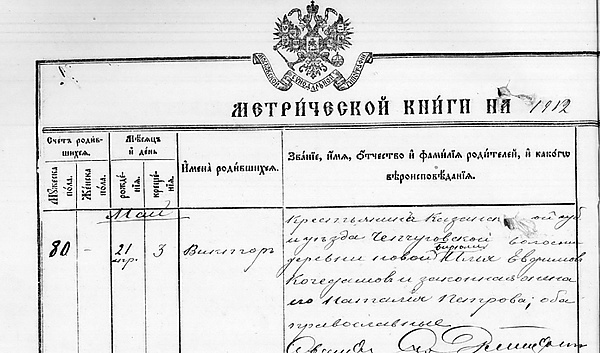 МЕТРИЧЕСКОЙ КНИГИ НА 1912
Счетъ родив-
шихся.
Мѣсяцъ
и день
Имена родившихся.
Званіе, имя, отчество и фамилія родителей, и какого
вѣроисповѣданія.
Мужеска
пола.
Женска
пола.
рожде-
нія.
креще-
нія.
Май
80
-
21
апр.
3
Викторъ
Крестьянина Казанской губ
и уѣзда Чепчуговской волости
деревни новой Илья Евдокимов
и законная жена
его Наталія Петрова; оба
православные